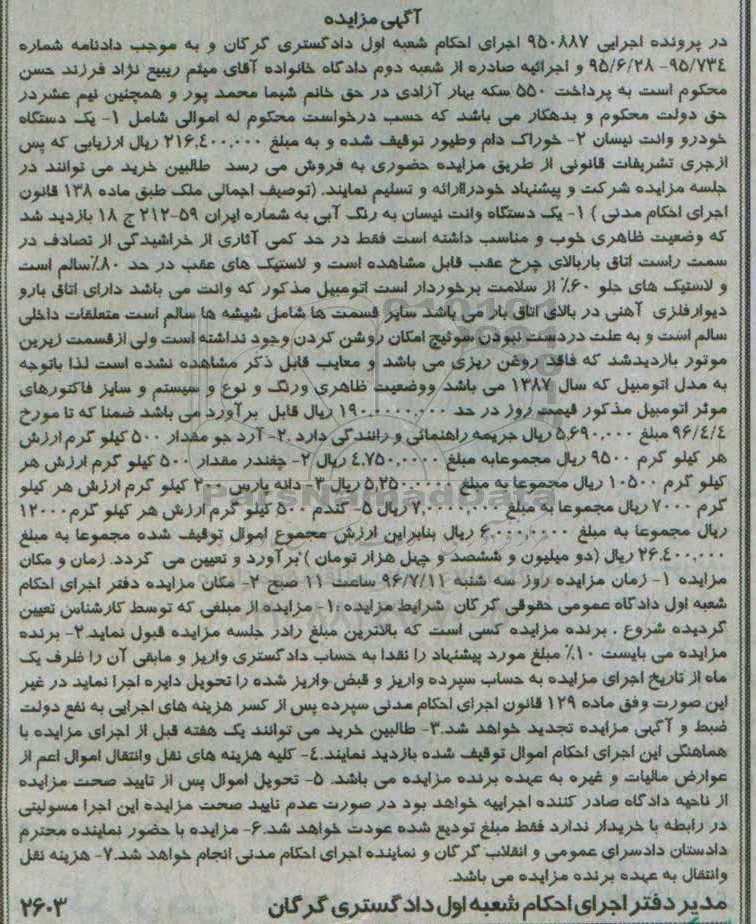 آگهی مزایده
در پرونده اجرایی ۹۵۰۸۸۷ اجرای احکام شعبه اول دادگستری گرگان و به موجب دادنامه شماره
۹۵/۷۳٤-۹۵/۶/۲۸ و اجرائیه صادره از شعبه دوم دادگاه خانواده آقای میثم ربیع نژاد فرزند حسن
محکوم است به پرداخت ۵۵۰ سکه بهار آزادی در حق خانم شیما محمد پور و همچنین نیم عشر در
حق دولت محکوم و بدهکار می باشد که حسب درخواست محکوم له اموالی شامل ۱- یک دستگاه
خودرو وانت نیسان ۲- خوراک دام وطیور توقیف شده و به مبلغ ۲۱۶.٤۰۰.۰۰۰ ریال ارزیابی که پس
ازجری تشریفات قانونی از طریق مزایده حضوری به فروش می رسد طالبین خرید می توانند در
جلسه مزایده شرکت و پیشنهاد خودرا ارائه و تسلیم نمایند. (توصیف اجمالی ملک طبق ماده ۱۳۸ قانون
اجرای احکام مدنی ) ۱- یک دستگاه وانت نیسان به رنگ آبی به شماره ایران ۵۹-۲۱۲ ج ۱۸ بازدید شد
که وضعیت ظاهری خوب و مناسب داشته است فقط در حد کمی آثاری از خراشیدگی از تصادف در
سمت راست اتاق باربالای چرخ عقب قابل مشاهده است و لاستیک های عقب در حد ۸۰٪سالم است
و لاستیک های جلو ۶۰٪ از سلامت برخوردار است اتومبیل مذکور که وانت می باشد دارای اتاق بارو
دیوارفلزی آهنی در بالای اتاق بار می باشد سایر قسمت ها شامل شیشه ها سالم است متعلقات داخلی
سالم است و به علت دردست نبودن سوئیچ امکان روشن کردن وجود نداشته است ولی ازقسمت زیرین
موتور بازدیدشد که فاقد روغن ریزی می باشد و معایب قابل ذکر مشاهده نشده است لذا باتوجه
به مدل اتومبیل که سال ۱۳۸۷ می باشد ووضعیت ظاهری ورنگ و نوع و سیستم و سایر فاکتورهای
موثر اتومبیل مذکور قیمت روز در حد ۱۹۰.۰۰۰۰.۰۰۰ ریال قابل برآورد می باشد ضمنا که تا مورخ
۹۶/٤/٤ مبلغ ۵.۶۹۰.۰۰۰ ریال جریمه راهنمائی و رانندگی دارد .۲- آرد جو مقدار ۵۰۰ کیلو گرم ارزش
هر کیلو گرم ۹۵۰۰ ریال مجموعابه مبلغ ٤.۷۵۰.۰۰۰ ریال ۲- چغندر مقدار ۵۰۰ کیلو گرم ارزش هر
کیلو گرم ۱۰۵۰۰ ریال مجموعا به مبلغ ۵.۲۵۰.۰۰۰۰ ریال ۳- دانه پارس ۲۰۰ کیلو گرم ارزش هر کیلو
گرم ۷۰۰۰ ریال مجموعا به مبلغ ۷.۰۰۰۰.۰۰۰ ریال ۵- گندم ۵۰۰ کیلو گرم ارزش هر کیلو گرم۱۲۰۰۰
ریال مجموعا به مبلغ ۶.۰۰۰.۰۰۰ ریال بنابراین ارزش مجموع اموال توقیف شده مجموعا به مبلغ
۲۶.٤۰۰.۰۰۰ ریال (دو میلیون و ششصد و چهل هزار تومان ) برآورد و تعیین می گردد. زمان و مکان
مزایده ۱- زمان مزایده روز سه شنبه ۹۶/۷/۱۱ ساعت ۱۱ صبح ۲- مکان مزایده دفتر اجرای احکام
شعبه اول دادگاه عمومی حقوقی گرگان شرایط مزایده :۱- مزایده از مبلغی که توسط کارشناس تعیین
گردیده شروع . برنده مزایده کسی است که بالاترین مبلغ رادر جلسه مزایده قبول نماید.۲- برنده
مزایده می بایست ۱۰٪ مبلغ مورد پیشنهاد را نقدا به حساب دادگستری واریز و مابقی آن را ظرف یک
ماه از تاریخ اجرای مزایده به حساب سپرده واریز و قبض واریز شده را تحویل دایره اجرا نماید در غیر
این صورت وفق ماده ۱۲۹ قانون اجرای احکام مدنی سپرده پس از کسر هزینه های اجرایی به نفع دولت
ضبط و آگهی مزایده تجدید خواهد شد.۳- طالبین خرید می توانند یک هفته قبل از اجرای مزایده با
هماهنگی این اجرای احکام اموال توقیف شده بازدید نمایند.٤- کلیه هزینه های نقل وانتقال اموال اعم از
عوارض مالیات و غیره به عهده برنده مزایده می باشد. ۵- تحویل اموال پس از تایید صحت مزایده
از ناحیه دادگاه صادر کننده اجراییه خواهد بود در صورت عدم تایید صحت مزایده این اجرا مسولیتی
در رابطه با خریدار ندارد فقط مبلغ تودیع شده عودت خواهد شد.۶- مزایده با حضور نماینده محترم
دادستان دادسرای عمومی و انقلاب گرگان و نماینده اجرای احکام مدنی انجام خواهد شد.۷- هزینه نقل
وانتقال به عهده برنده مزایده می باشد.
مدیر دفتر اجرای احکام شعبه اول دادگستری گرگان ۲۶۰۳
ParsNamadData